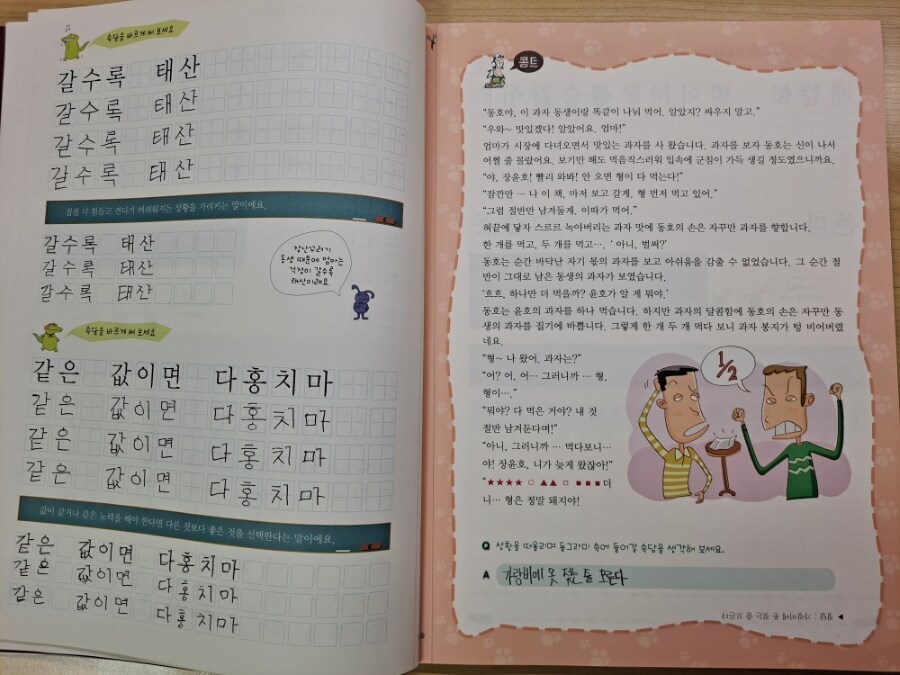 속담을 바르게 써 보세요
갈수록 태산
갈수록 태산
갈수록 태산
갈수록 태산
점점 더 힘들고 견디기 어려워지는 상황을 가리키는 말이에요.
갈수록 태산
갈수록 태산
갈수록 태산
장난꾸러기
동생 때문에 엄마는
걱정이 갈수록
태산이래요.
속담을 바르게 써 보세요
같은 값이면 다홍치마
같은 값이면 다홍치마
같은 값이면 다홍치마
같은 값이면 다홍치마
값이 같거나 같은 노력을 해야 한다면 다른 것보다 좋은 것을 선택한다는 말이에요.
같은 값이면 다홍치마
같은 값이면 다홍치마
같은 값이면 다홍치마
콩트
“동호야, 이 과자 동생이랑 똑같이 나눠 먹어. 알았지? 싸우지 말고.”
“우와~ 맛있겠다! 알았어요. 엄마!”
엄마가 시장에 다녀오면서 맛있는 과자를 사 왔습니다. 과자를 보자 동호는 신이 나서
어쩔 줄 몰랐어요. 보기만 해도 먹음직스러워 입속에 군침이 가득 생길 정도였으니까요.
“야, 장윤호! 빨리 와봐! 안 오면 형이 다 먹는다!”
“잠깐만 … 나 이 책, 마저 보고 갈게, 형 먼저 먹고 있어.”
“그럼 절반만 남겨둘게, 이따가 먹어.”
혀끝에 닿자 스르르 녹아버리는 과자 맛에 동호의 손은 자꾸만 과자를 향합니다.
한 개를 먹고, 두 개를 먹고…. ‘ 아니, 벌써?’
동호는 순간 바닥난 자기 몫의 과자를 보고 아쉬움을 감출 수 없었습니다. 그 순간 절
반이 그대로 남은 동생의 과자가 보였습니다.
‘흐흐, 하나만 더 먹을까? 윤호가 알 게 뭐야.’
동호는 윤호의 과자를 하나 먹습니다. 하지만 과자의 달콤함에 동호의 손은 자꾸만 동
생의 과자를 집기에 바쁩니다. 그렇게 한 개 두 개 먹다 보니 과자 봉지가 텅 비어버렸
네요.
“형~ 나 왔어, 과자는?”
“어? 어, 어… 그러니까 … 형,
형이….”
“뭐야? 다 먹은 거야? 내 것
절반 남겨둔다며!”
“아니, 그러니까 … 먹다보니…
야! 장윤호, 니가 늦게 왔잖아!”
“★★★★ ○ ▲▲ □ ■ ■ ■ 더
니… 형은 정말 돼지야!
1/2
Q 상황을 떠올리며 동그라미 속에 들어갈 속담을 생각해 보세요.
A 가랑비에 옷 젖는 줄 모른다
◀ 정답 : 가랑비에 옷 젖는 줄 모른다